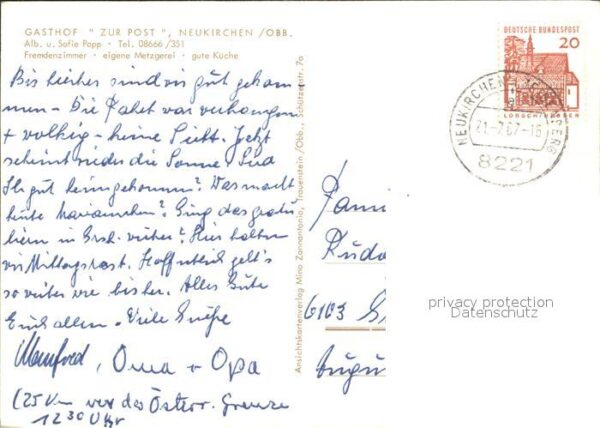 GASTHOF " ZUR POST ", NEUKIRCHEN /OBB.
Alb. u. Sofie Papp · Tel. 08666 /351
Fremdenzimmer · eigene Metzgerei · gute Küche
Bis hierher sind wir gut gekom-
men - Die Fahrt war verhangen
+ wolkig - keine Sicht. Jetzt
scheint wieder die Sonne. Seid
Ihr gut heimgekommen? Was macht
heute Mariannchen? Ging das gratu
lieren in Ersh. vorüber? Hier halten
wir Mittagsrast. Hoffentlich geht's
so weiter wie bisher. Alles Gute
Euch allen. Viele Grüße
Manfred, Oma + Opa
(25 Km vor der Österr. Grenze
12 30 Uhr
Ansichtskartenverlag Mino Zannantonio, Traunstein/Obb., Schützenstr. 7a
DEUTSCHE BUNDESPOST
20
LORSCH/HESSEN
NEUKIRCHEN
21.-7.67-16
8221
Fami
Rudo
6103
Augu
privacy protection
Datenschutz